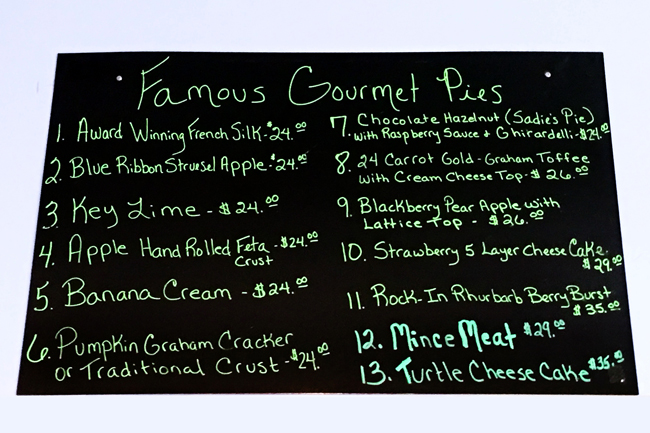 Famous Gourmet Pies
1. Award Winning French Silk - $24.00
2. Blue Ribbon Struesel Apple - $24.00
3. Key Lime - $24.00
4. Apple Hand Rolled Feta - $24.00
Crust
5. Banana Cream - $24.00
6. Pumpkin Graham Cracker
or Traditional Crust - $24.00
7. Chocolate Hazelnut (Sadie's Pie)
with Raspberry Sauce + Ghirardelli - $24.00
8. 24 Carrot Gold - Graham Toffee
with Cream Cheese Top - $26.00
9. Blackberry Pear Apple with
Lattice Top - $26.00
10. Strawberry 5 Layer Cheese Cake -
$29.00
11. Rock-In Rhurbarb Berry Burst
$35.00
12. Mince Meat $29.00
13. Turtle Cheese Cake $35.00